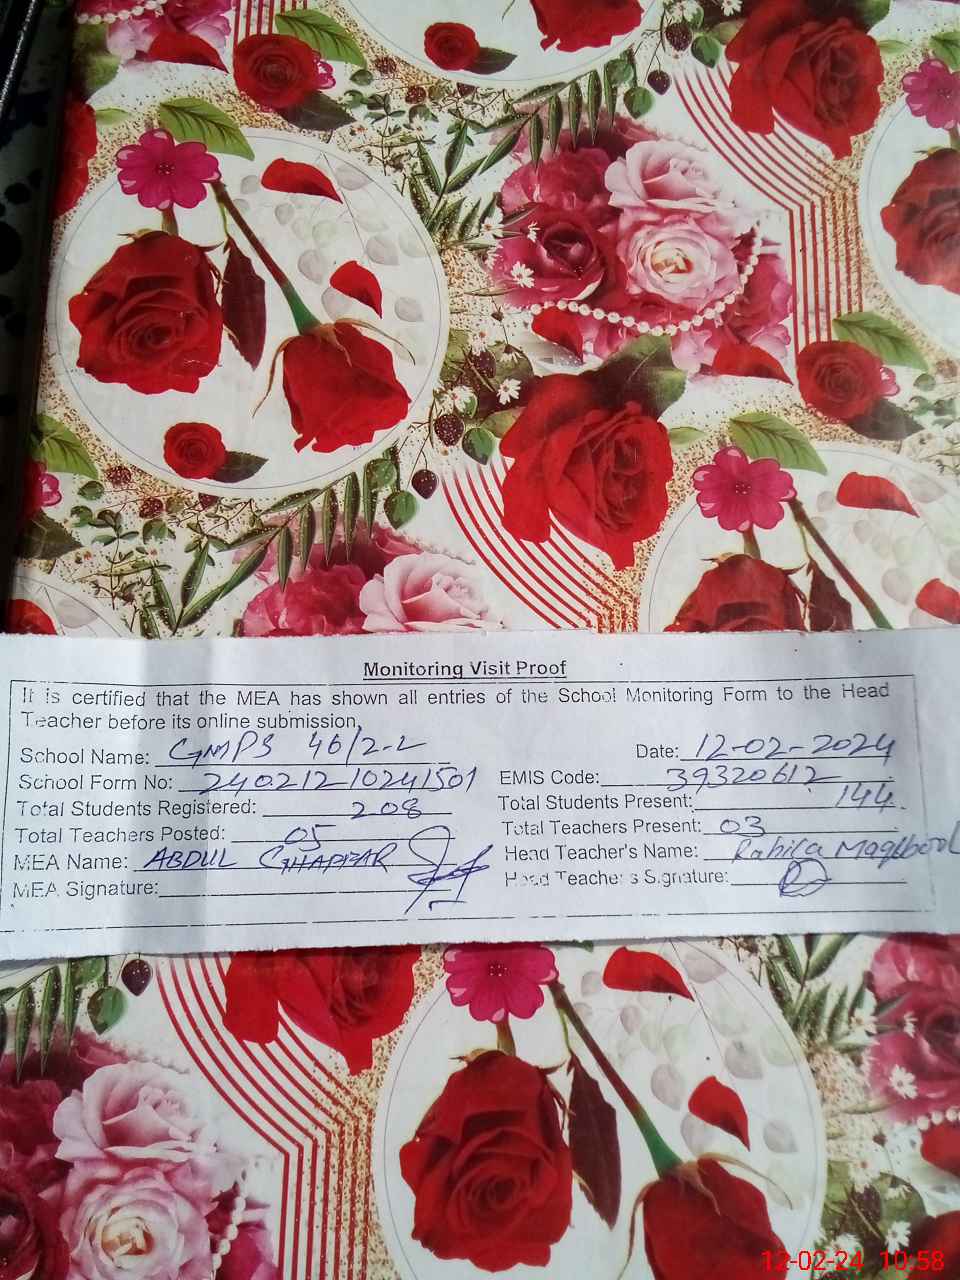 Monitoring Visit Proof
It is certified that the MEA has shown all entries of the School Monitoring Form to the Head
Teacher before its online submission,
School Name: GMPS 46/2-L Date: 12-02-2024
School Form No: 240212-10241501 EMIS Code: 39320612
Total Students Registered: 208 Total Students Present: 144
Total Teachers Posted: 05 Total Teachers Present: 03
MEA Name: ABDUL GHAFFAR Head Teacher's Name: Rahila Maqbool
MEA Signature: Head Teacher's Signature:
12-02-24 10:58